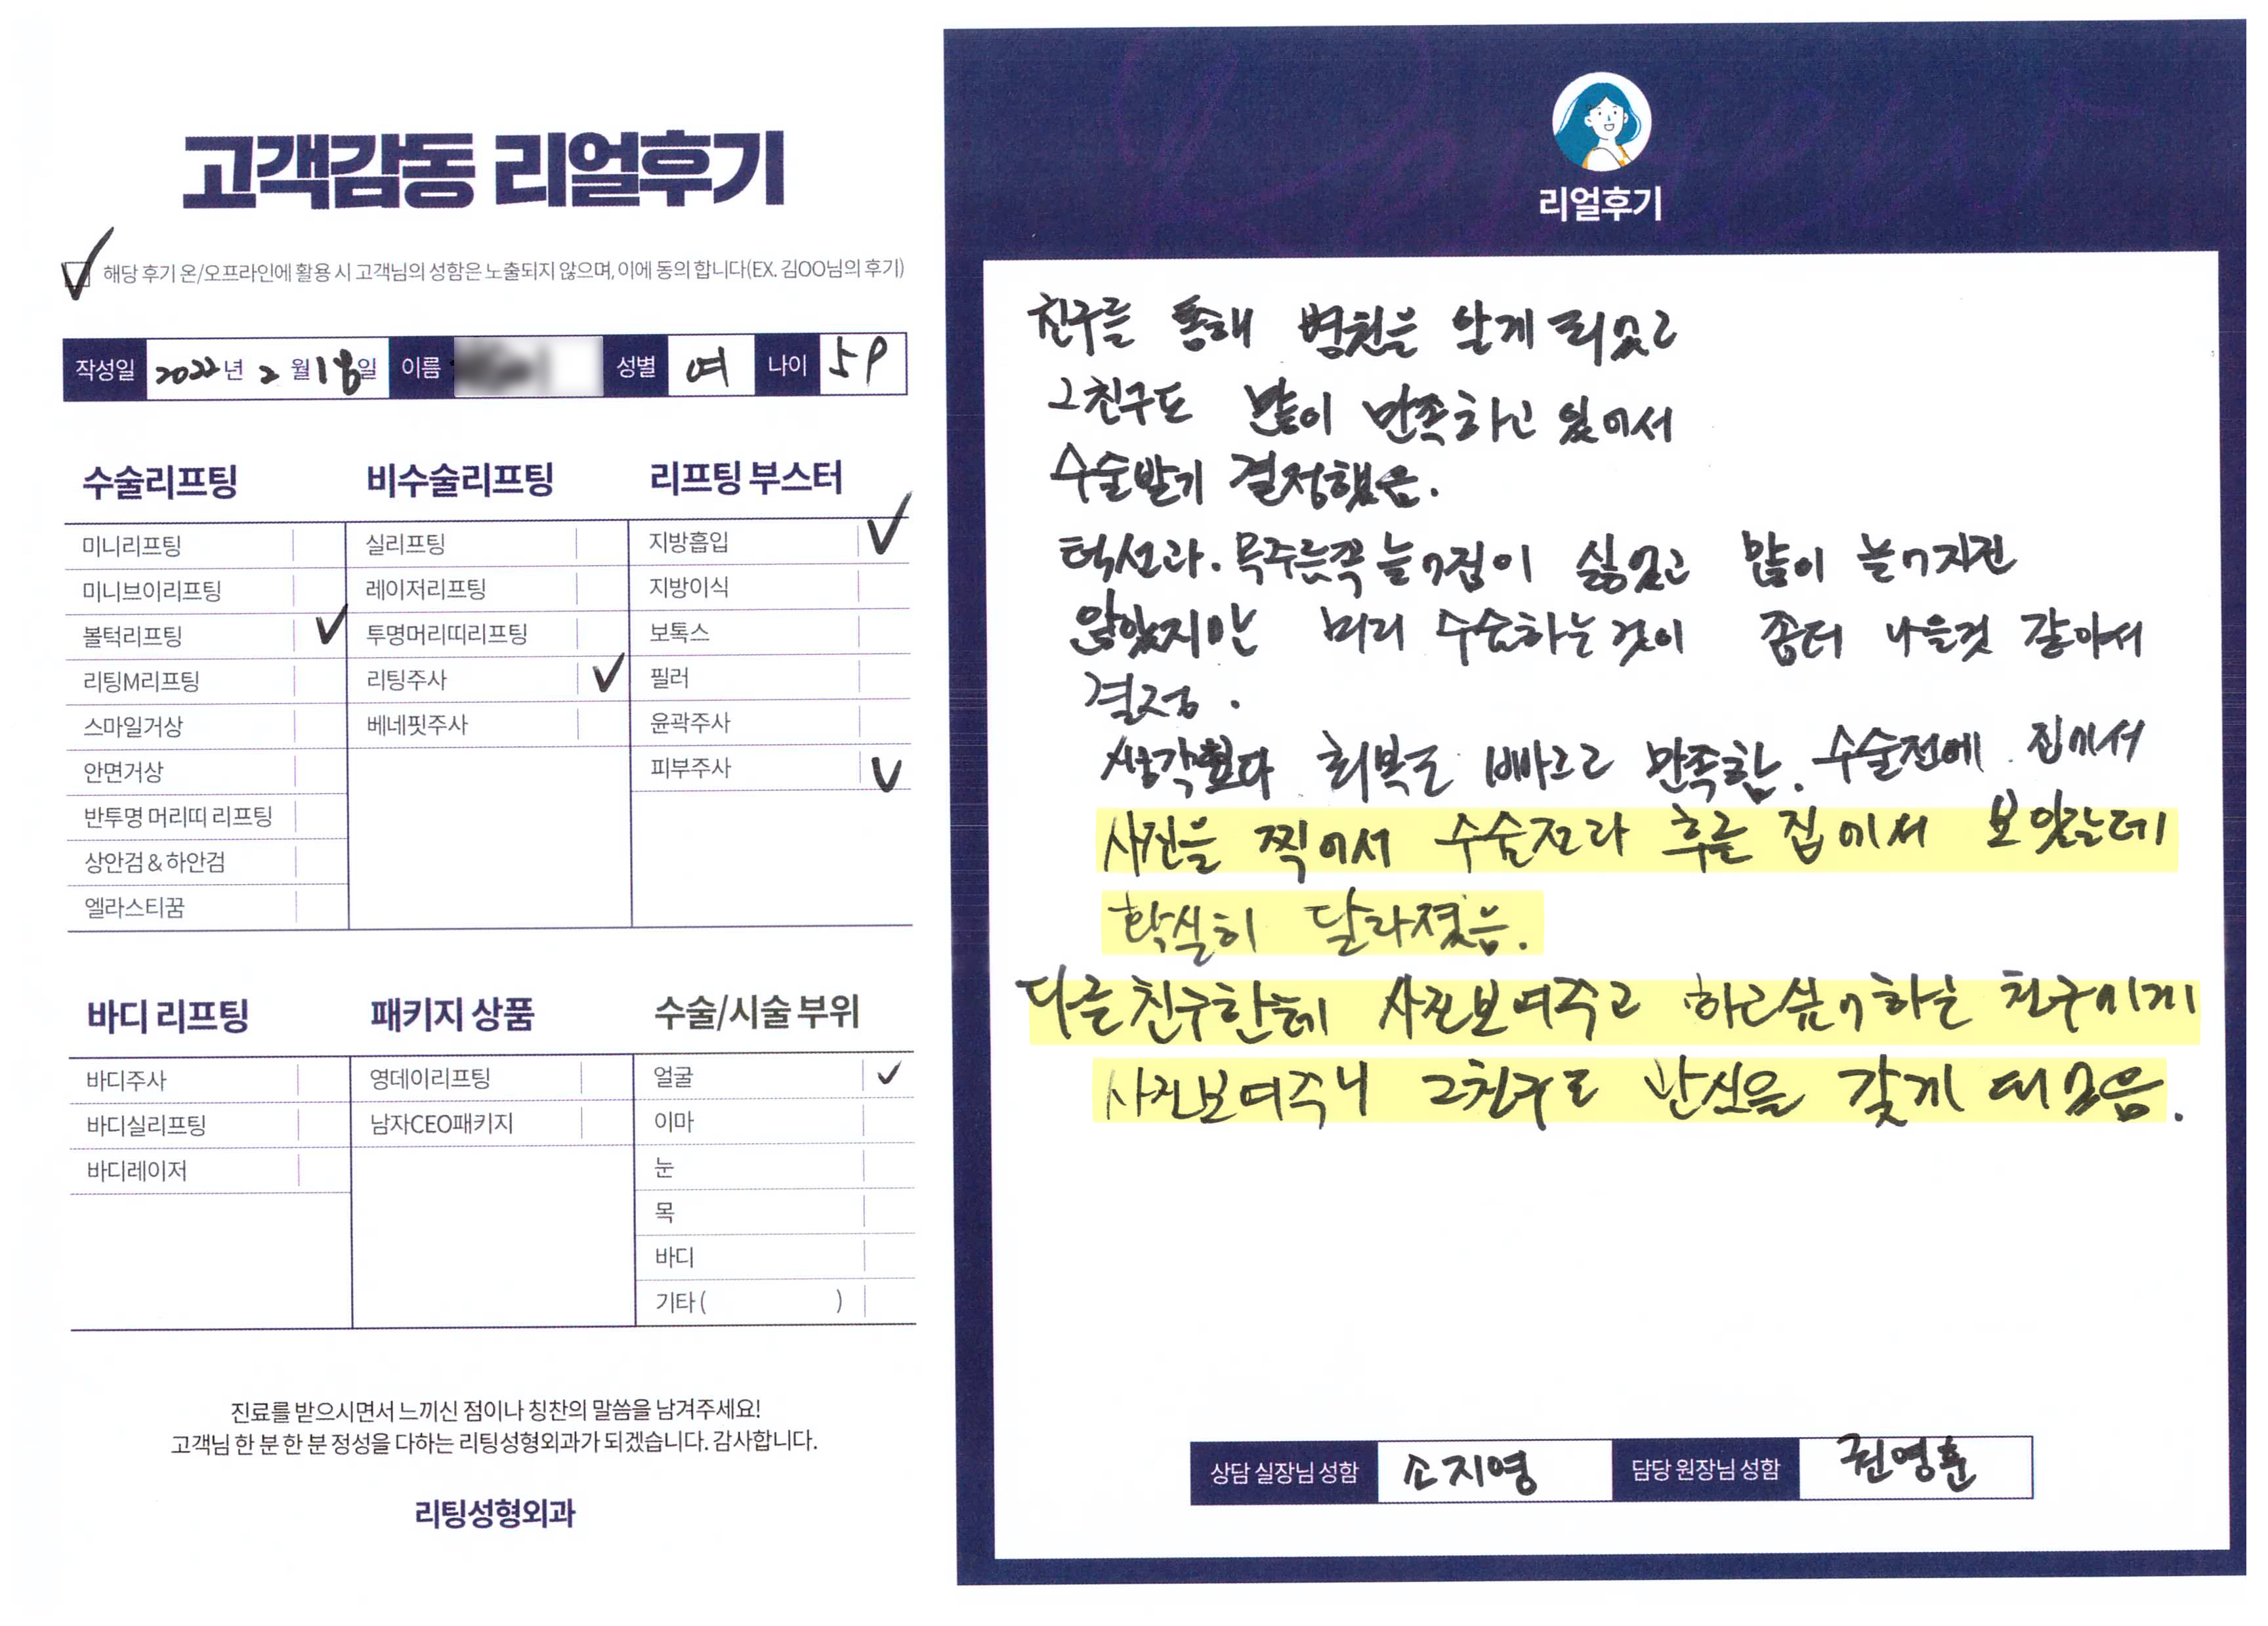 고객감동 리얼후기
해당 후기 온/오프라인에 활용 시 고객님의 성함은 노출되지 않으며, 이에 동의 합니다(EX. 김OO님의 후기)
작성일 2022년 2월 18일 이름 성별 여 나이 59
수술리프팅
미니리프팅
미니브이리프팅
볼턱리프팅 ✓
리팅M리프팅
스마일거상
안면거상
반투명 머리띠 리프팅
상안검 & 하안검
엘라스티꿈
비수술리프팅
실리프팅
레이저리프팅
투명머리띠리프팅
리팅주사 ✓
베네핏주사
리프팅 부스터
지방흡입 ✓
지방이식
보톡스
필러
윤곽주사
피부주사 ✓
바디 리프팅
바디주사
바디실리프팅
바디레이저
패키지 상품
영데이리프팅
남자CEO패키지
수술/시술 부위
얼굴 ✓
이마
눈
목
바디
기타 ( )
진료를 받으시면서 느끼신 점이나 칭찬의 말씀을 남겨주세요!
고객님 한 분 한 분 정성을 다하는 리팅성형외과가 되겠습니다. 감사합니다.
리팅성형외과
리얼후기
친구를 통해 병원을 알게 되었고
그친구도 많이 만족하고 있어서
수술받기 결정했음.
턱선과. 목주름쪽 늘어짐이 싫었고 많이 늘어지진
않았지만 미리 수술하는것이 좀더 나을것 같아서
결정.
생각보다 회복도 빠르고 만족함. 수술전에 집에서
사진을 찍어서 수술전과 후를 집에서 보았는데
확실히 달라졌음.
다른친구한테 사진보여주고 하고싶어하는 친구에게
사진보여주니 그친구도 관심을 갖게 되었음.
상담 실장님 성함 소지영 담당 원장님 성함 권영훈